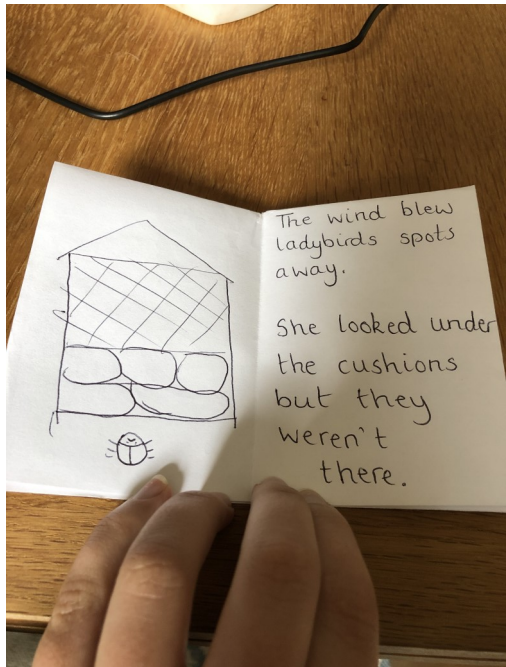 The wind blew
ladybirds spots
away.
She looked under
the cushions
but they
weren't
there.